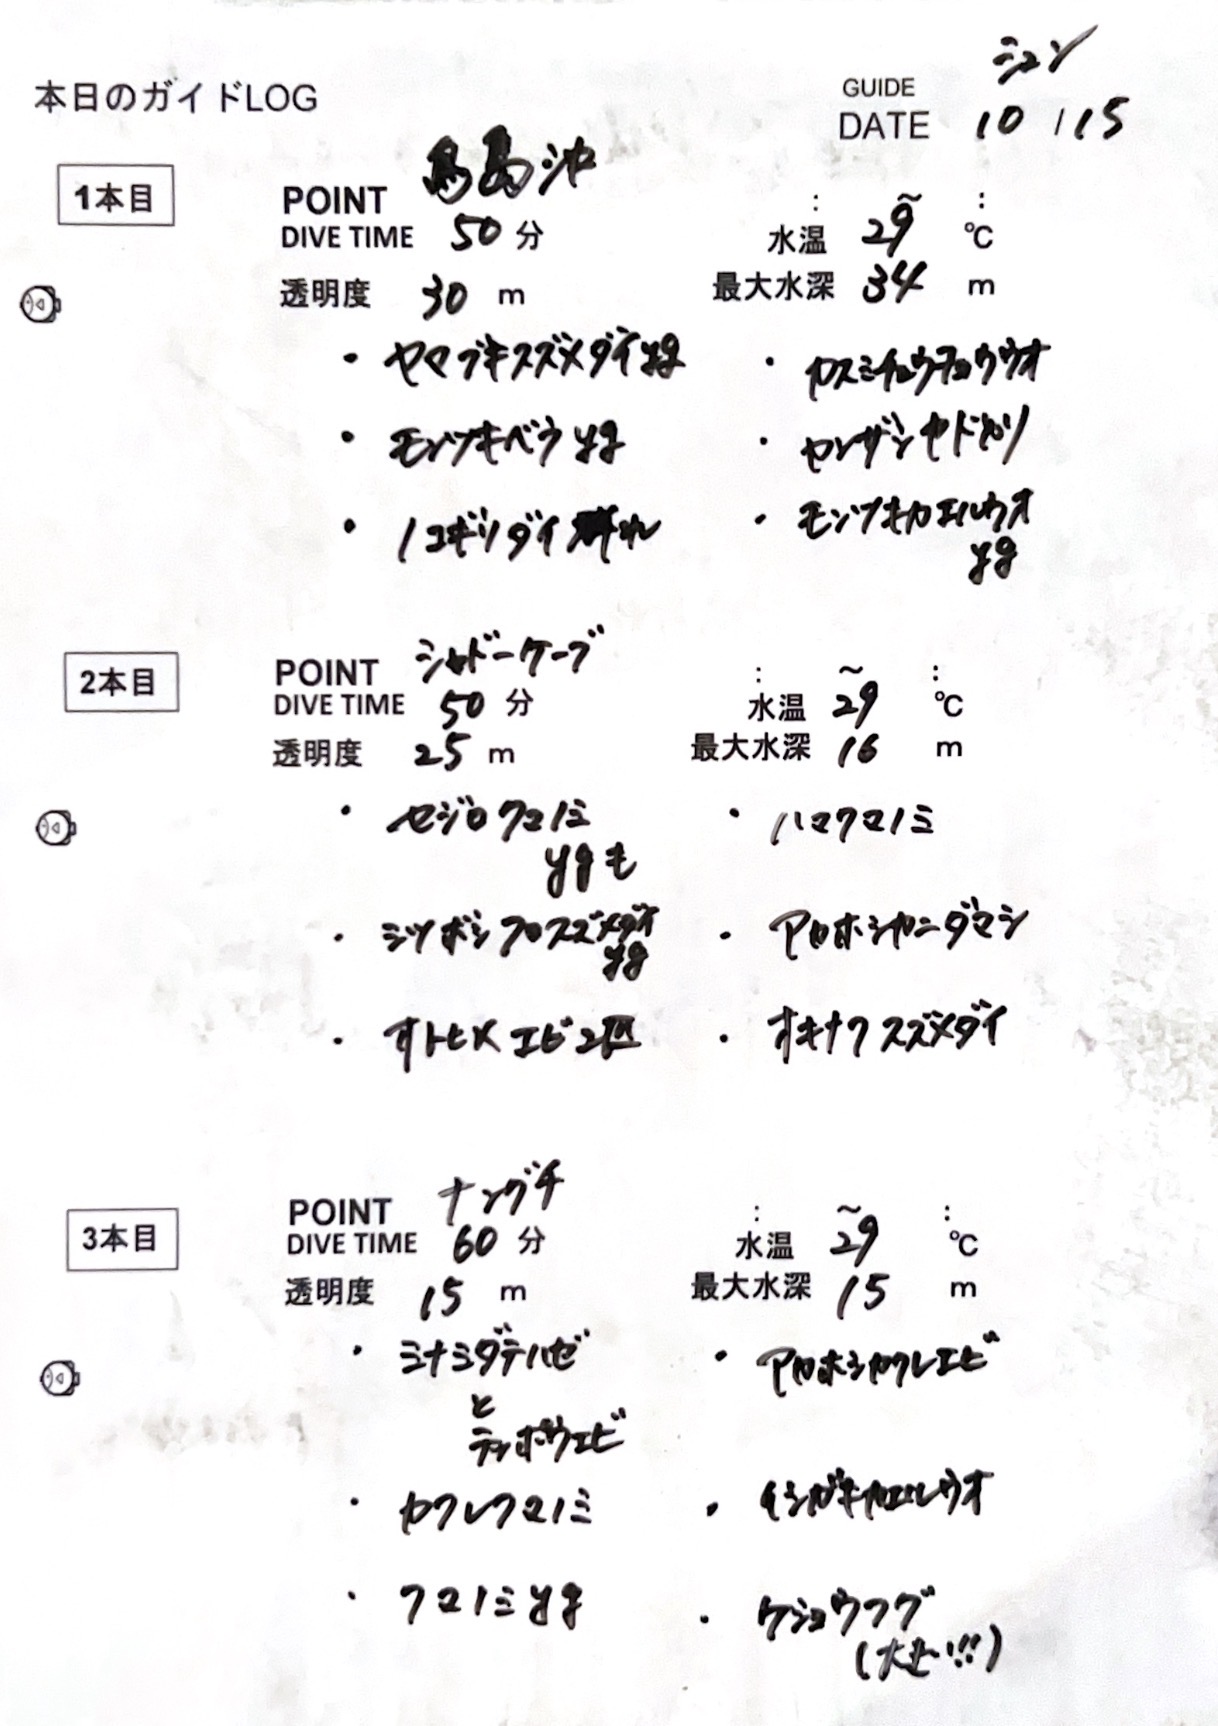 シュン
本日のガイドLOG
GUIDE
DATE 10 / 15
1本目
POINT 烏島沖
DIVE TIME 50 分
: ~ :
水温 29 ℃
透明度 30 m
最大水深 34 m
・ヤマブキスズメダイyg
・カスミチョウチョウウオ
・モンツキベラyg
・センザンヤドカリ
・ノコギリダイ群れ
・モンツキカエルウオ
yg
2本目
POINT シャドーケーブ
DIVE TIME 50 分
: ~ :
水温 29 ℃
透明度 25 m
最大水深 16 m
・セジロクマノミ
ygも
・ハマクマノミ
・ミツボシクロスズメダイ
yg
・アカホシカニダマシ
・オトヒメエビ2匹
・オキナワスズメダイ
3本目
POINT ナングチ
DIVE TIME 60 分
: ~ :
水温 29 ℃
透明度 15 m
最大水深 15 m
・ミナミダテハゼ
と
テッポウエビ
・アカホシカクレエビ
・カクレクマノミ
・イシガキカエルウオ
・クマノミyg
・ケショウフグ
(大きい!!!)